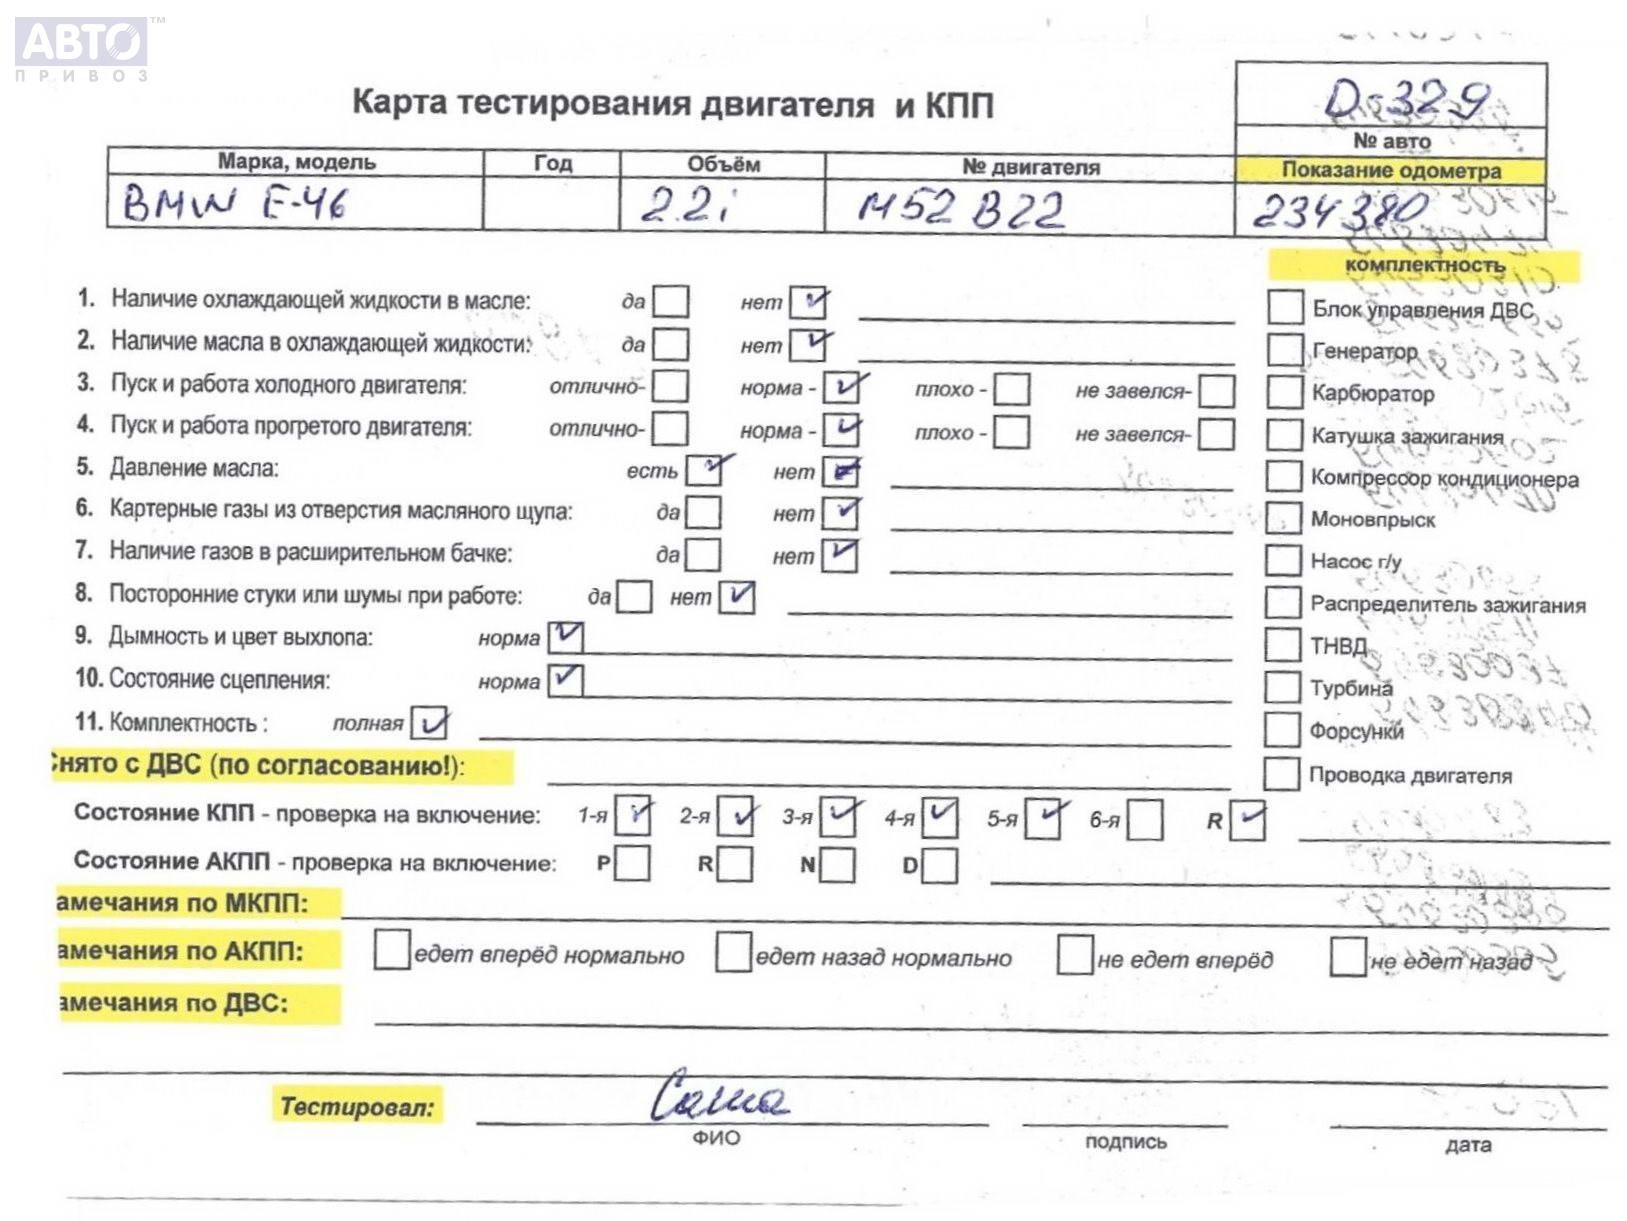 АВТО ™
ПРИВОЗ
D-329
Карта тестирования двигателя и КПП
№ авто
Марка, модель Год Объём № двигателя Показание одометра
BMW E-46 2.2i M52 B22 234380
комплектность
1. Наличие охлаждающей жидкости в масле: да нет
Блок управления ДВС
2. Наличие масла в охлаждающей жидкости: да нет
Генератор
3. Пуск и работа холодного двигателя: отлично- норма - плохо - не завелся-
Карбюратор
4. Пуск и работа прогретого двигателя: отлично- норма - плохо - не завелся-
Катушка зажигания
5. Давление масла: есть нет
Компрессор кондиционера
6. Картерные газы из отверстия масляного щупа: да нет
Моновпрыск
7. Наличие газов в расширительном бачке: да нет
Насос г/у
8. Посторонние стуки или шумы при работе: да нет
Распределитель зажигания
9. Дымность и цвет выхлопа: норма
ТНВД
10. Состояние сцепления: норма
Турбина
11. Комплектность : полная
Форсунки
Снято с ДВС (по согласованию!):
Проводка двигателя
Состояние КПП - проверка на включение: 1-я 2-я 3-я 4-я 5-я 6-я R
Состояние АКПП - проверка на включение: P R N D
амечания по МКПП:
амечания по АКПП: едет вперёд нормально едет назад нормально не едет вперёд не едет назад
амечания по ДВС:
Тестировал: Саша
ФИО подпись дата